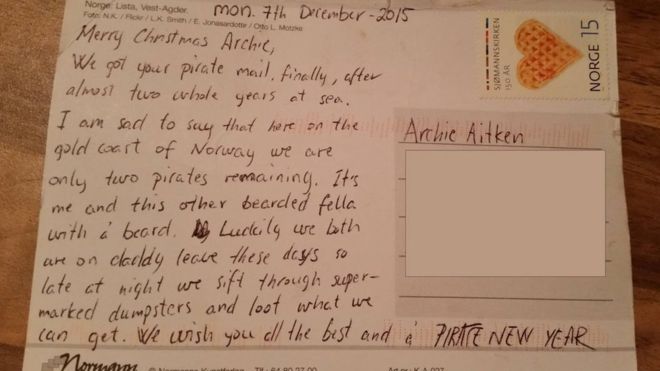 Norge: Lista, Vest-Agder.
Foto: N.K. / Flickr / L.K. Smith / E. Jonasardottir / Otto L. Motzke
mon. 7th December - 2015
SJØMANNSKIRKEN
150 ÅR
NORGE 15
Merry Christmas Archie,
We got your pirate mail, finally, after
almost two whole years at sea.
I am sad to say that here on the
gold coast of Norway we are
only two pirates remaining. It's
me and this other bearded fella
with a beard. Luckily we both
are on daddy leave these days so
late at night we sift through super-
marked dumpsters and loot what we
can get. We wish you all the best and a PIRATE NEW YEAR
Archie Aitken
Normann